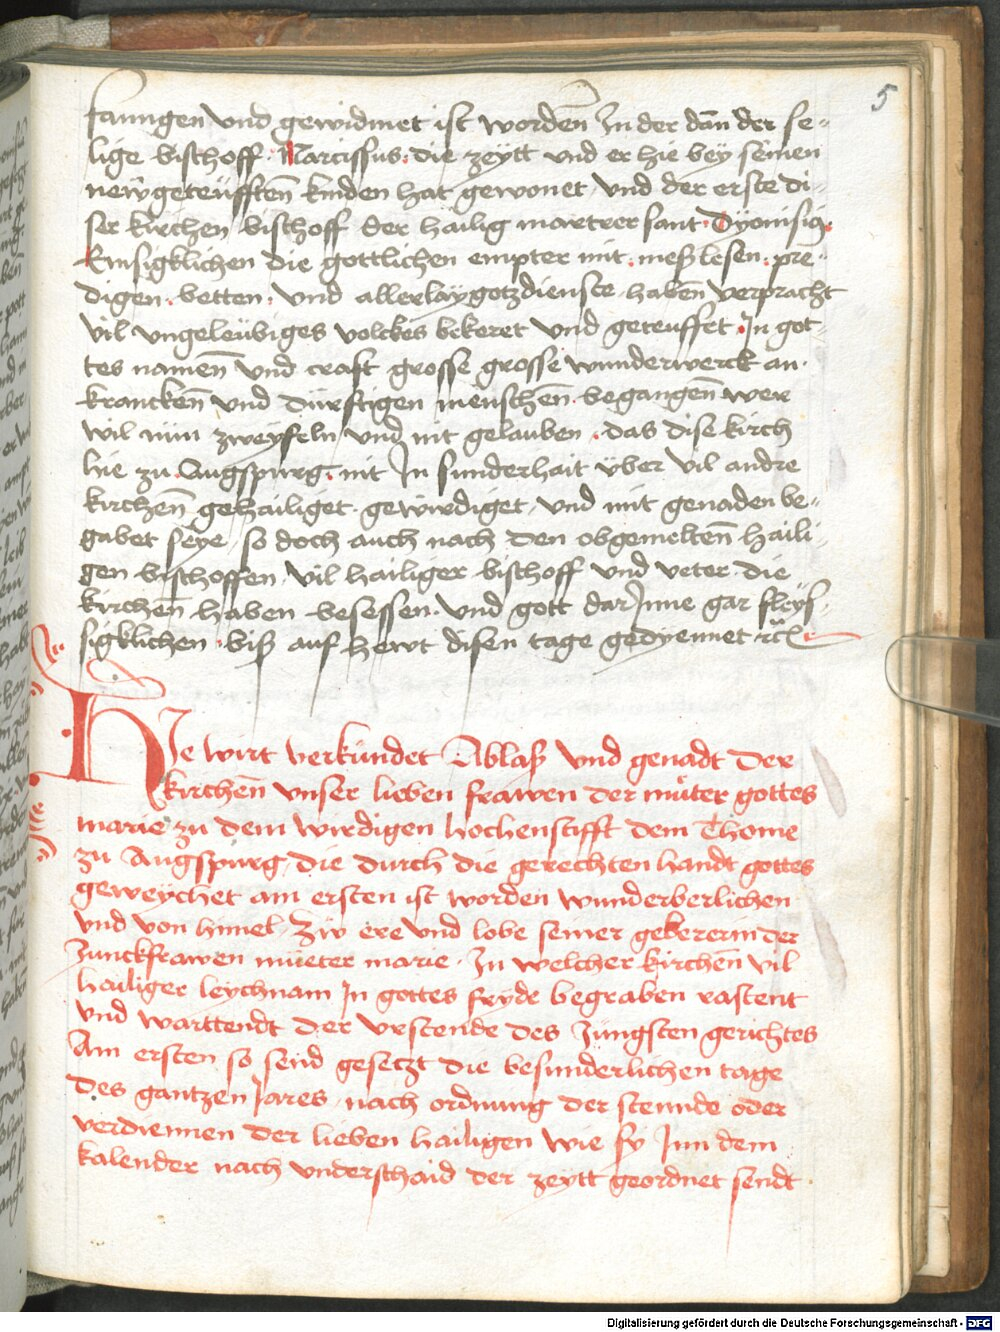 5
fanngen vnd gewidmet ist worden In der dan der se-
lige bischoff Narcissus die zeytt vnd er hie bey seinen
new geteüfften kinden hat gewonet vnd der erste di-
ser kirchen bischoff der hailig martrer sant Dyonisius
Emsigklichen die gottlichen empter mit messlesen pre-
digen betten vnd allerlay gotzdienste haben verpracht
vil vngeleübiges volckes bekeret vnd geteuffet In got-
tes namen vnd craft grosse grosse wunderwerck an
krancken vnd dürftigen menschen begangen wer
wil nun zweyfeln vnd nit gelauben das dise kirch
hie zu Augspurg nit In sunderhait über vil andre
kirchen gehailiget gewirdiget vnd mit genaden be-
gabet seye so doch auch nach den obgemelten haili-
gen bischoffen vil hailiger bischoff vnd veter die
kirchen haben besessen vnd gott dar Inne gar fleys-
sigklichen biß auf hewt disen tage gedyennet
HIe wirt verkündet Ablaß vnd genadt der
kirchen vnser lieben frawen der müter gottes
marie zu dem wirdigen hochenstifft dem Thome
zu Augspurg die durch die gerechten handt gottes
geweychet am ersten ist worden wunderberlichen
vnd von himel zw ere vnd lobe seiner gebererin der
Junckfrawen müeter marie In welcher kirchen vil
hailiger leychnam In gottes fryde begraben rastent
vnd warttendt der vrstende des Jüngsten gerichtes
Am ersten so send gesetzt die besunderlichen tage
des gantzen Jares nach ordnung der stennde oder
verdiennen der lieben hailigen wie sy Inn dem
kalender nach vnderschaid der zeytt geordnet sendt
Digitalisierung gefördert durch die Deutsche Forschungsgemeinschaft - DFG